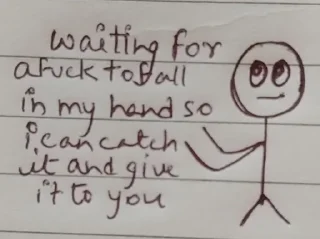 waiting for
a fuck to fall
in my hand so
i can catch
it and give
it to you